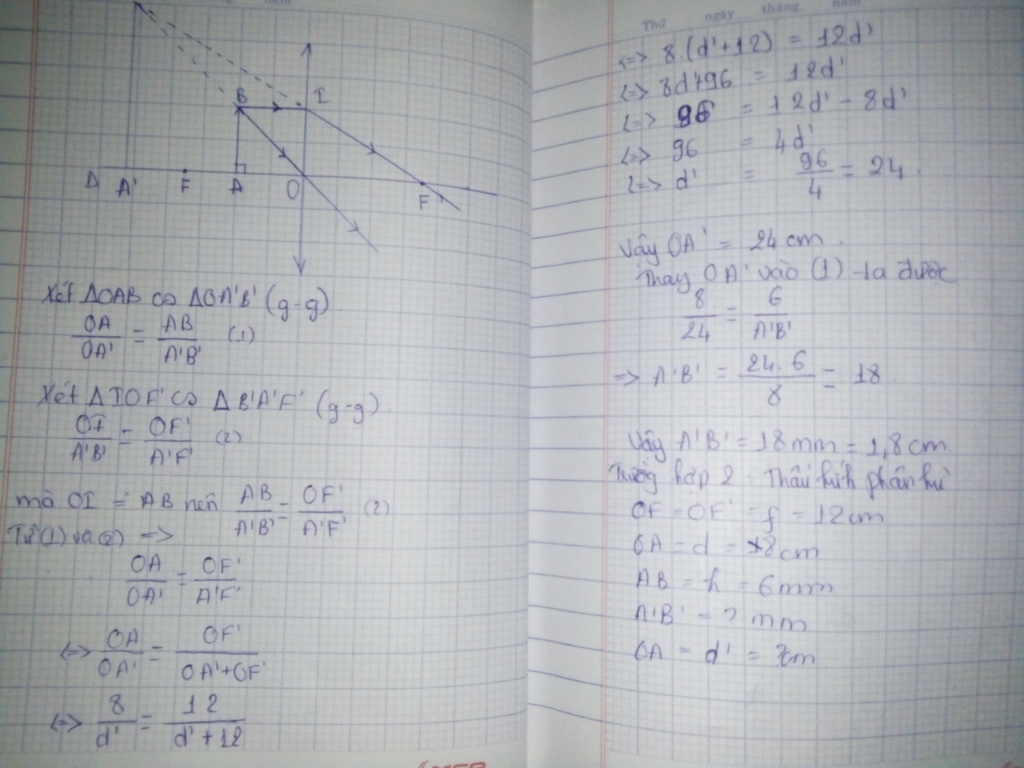 B I
Δ A' F A O F'
Xét ΔOAB ∽ ΔOA'B' (g-g)
OA/OA' = AB/A'B' (1)
Xét ΔIOF' ∽ ΔB'A'F' (g-g)
OI/A'B' = OF'/A'F' (2)
mà OI = AB nên AB/A'B' = OF'/A'F' (2)
Từ (1) và (2) =>
OA/OA' = OF'/A'F'
<=> OA/OA' = OF'/OA'+OF'
<=> 8/d' = 12/d'+12
Thứ ngày tháng năm
<=> 8.(d'+12) = 12d'
<=> 8d'+96 = 12d'
<=> 96 = 12d' - 8d'
<=> 96 = 4d'
<=> d' = 96/4 = 24.
Vậy OA' = 24cm.
Thay OA' vào (1) ta được
8/24 = 6/A'B'
=> A'B' = 24.6/8 = 18
Vậy A'B' = 18mm = 1,8cm
Trường hợp 2: Thấu kính phân kì
OF = OF' = f = 12cm
OA = d = 8cm
AB = h = 6mm
A'B' = ? mm
OA = d' = ?cm